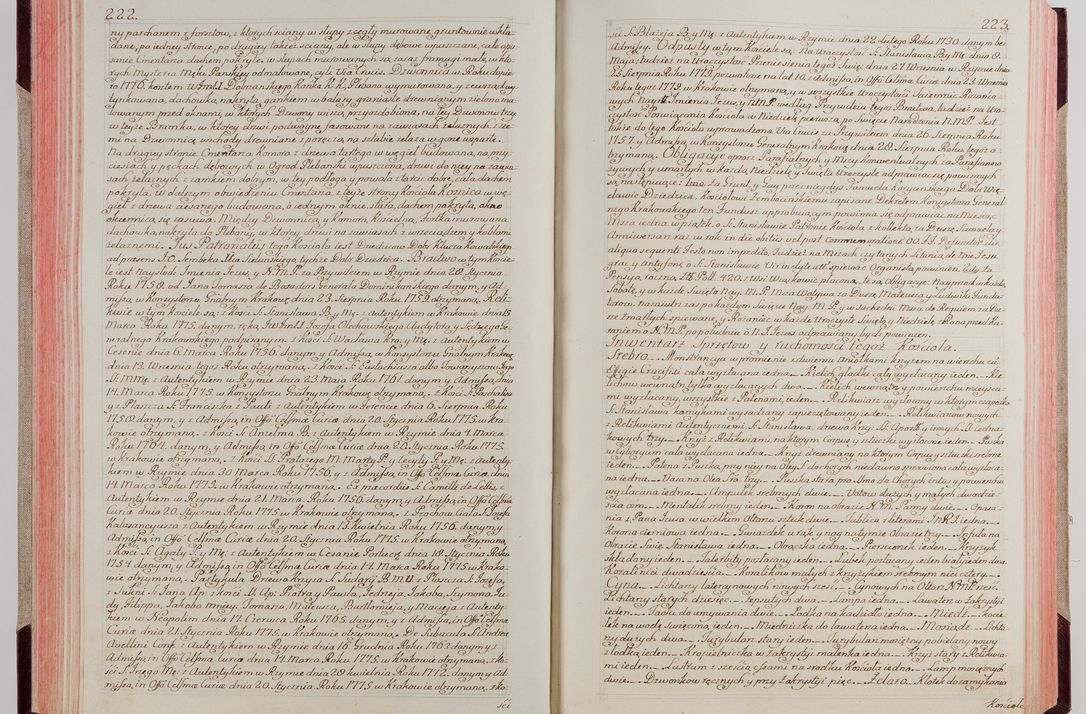 222.
ny parchanem z forsztow, z których sciany w słupy z cegły murowane gruntownie wkła-
dane, po iedney stronie, po drugiey takież sciany, ale w słupy dębowe wpuszczane, całe opa-
sanie Cmentarza dachem pokryte. w słupach murowanych są zaraz framugi małe, w któ-
rych Mysteria Męki Pańskiey odmalowane, czyli Via Crucis. Dzwonnica w Roku dopie-
ro 1770. kosztem Dolmanskiego Kanka K. K. Plebana wymurowana, y zewnątrz wy-
tynkowana, dachowką nakryta, gankiem w balasy graniaste drewnianym zielono ma-
lowanym przed oknami, w których Dzwony wiszą, przyozdobiona, na tey Dzwonow trzy
w teyże Bramka, w którey drzwi podwoyne fasowane na zawiasach żelaznych z zie-
mi na Dzwonnicę wschody drewniane z poręczą, na sztabie żelazney wygięte wsparte.
Na drugiey stronie Cmentarza Komora z drzewa tartego w węgieł budowana, na przy-
ciesiach y peckach dębowych w Ogrod Plebanski wypuszczona, drzwi do niey na zawia-
sach żelaznych z zamkiem dobrym, w tey podłoga y powała z tarcic dobre, cała dachem
pokryta. W dalszym obwiedzeniu Cmentarza z teyże strony Kościoła Kosnica w wę-
gieł z drzewa ciosanego budowana, o iednym oknie stara, dachem pokryta, okno
okiennicą się zasuwa. Między Dzwonnicą, y Komorą, kościelną, Furtka murowana
dachowką nakryta do Plebanii, w którey drzwi na zawiasach z wrzeciądzem y kobłami
żelaznemi. Jus Patronatus tego Kościoła iest Dziedzicow Dobr Klucza Kowalskiego
ad præsens J.O. Sembeka Xcia Sieluńskiego tychże Dobr Dziedzica. Bractwo w tym koscie-
le iest nayslod: Imienia Jezus, y N.M.P. za Przywileiem w Rzymie dnia 28. Stycznia
Roku 1758. od Jana Tomasza de Boxadors Generała Dominikanskiego danym, y Ad-
missą w Konsystorzu Gnalnym Krakow: dnia 23. Sierpnia Roku 1759. otrzymaną. Reli-
kwie w tym Kosciele są: z kości S. Stanisława B. y Mę. z Autentykiem w Krakowie dnia 15.
Marca Roku 1775. danym, ręką Jozefa Olechowskiego Audytora, y Sędziego Ge-
neralnego Krakowskiego podpisanym. z Kości S. Wacława Kro. y Mę. z autentykiem w
Cesenie dnia 6. Marca Roku 1756. danym, y Admissą, w Konsystorzu Gnalnym Krakow:
dnia 13. Września tegoż Roku otrzymaną. z Kości S. Eustachiusza albo Towarzyszow Jego
SS. MMę. z Autentykiem w Rzymie dnia 23. Maja Roku 1761. danym, y Admissą, dnia
14. Marca Roku 1775. w Konsystorzu Gnalnym Krakow: otrzymaną. z Kości S. Paschalisa
y z Płaszcza S. Franciszka z Pauli z Autentykiem w Ferencie dnia 6. Sierpnia Roku
1758. danym, y z Admissą, in Offo Celsmæ Curiæ dnia 20. Stycznia Roku 1775. w Kra-
kowie otrzymaną. z Kości S. Anselma B. z Autentykiem w Rzymie dnia 1. Marca
Roku 1764. danym, y Admissą in Offo Celsmæ Curiæ dnia 20. Stycznia Roku 1775.
w Krakowie otrzymaną. z Kości SS. Protazego M. Marty P. y Agaty P. y Mę. z Autenty-
kiem w Rzymie dnia 30. Marca Roku 1756. y z Admissą, in Offo Celsmæ Curiæ dnia
14. Marca Roku 1775. w Krakowie otrzymaną. Ex præcordiis S. Camilli de Lellis, z
Autentykiem w Rzymie dnia 21. Marca Roku 1756. danym, y Admissą, in Offo Celsmæ
Curiæ dnia 20. Stycznia Roku 1775. w Krakowie otrzymaną. z Prochow Ciała S. Jozefa
Kalasancyusza z Autentykiem w Rzymie dnia 13. Kwietnia Roku 1756. danym, y
Admissą, in Offo Celsmæ Curiæ dnia 20. Stycznia Roku 1775. w Krakowie otrzymaną.
z Kości S. Agaty P. y Mę. z Autentykiem w Cesanie Podwerz dnia 18. Stycznia Roku
1754. danym, y Admissą, in Offo Celsmæ Curiæ dnia 14. Marca Roku 1775. w Krako-
wie otrzymaną. Partykuła Drzewa Krzyża S. z Sudarij B.M.V. z Płaszcza S. Jozefa,
z Sukni S. Jana Ap: z Kości SS. Ap: Piotra, y Pawła, Jędrzeja, Jakoba, Szymona, Ju-
dy, Filippa, Jakoba mniey: Tomasza, Mateusza, Bartłomieja, y Macieja z Autenty-
kiem w Neapolim dnia 14. Czerwca Roku 1705. danym, y z Admissą, in Offo Celsmæ
Curiæ dnia 21. Stycznia Roku 1775. w Krakowie otrzymaną. De Subucula S. Andreæ
Avellini Conf: z Autentykiem w Rzymie dnia 16. Grudnia Roku 1763. danym, y z
Admissą, in Offo Celsmæ Curiæ dnia 14. Marca Roku 1775. w Krakowie otrzymaną. z Ko-
ści S. Jerzego Mę. z Autentykiem w Rzymie dnia 28. Kwietnia Roku 1772. danym, y Ad-
missą, in Offo Celsmæ Curiæ dnia 20. Stycznia Roku 1775. w Krakowie otrzymaną. z Ko-
ści
223.
ści S. Błażeja B. y Mę. z Autentykiem w Rzymie dnia 22. Lutego Roku 1730. danym bez
Admissy. Odpusty w tym Kościele są: Na Uroczystość S. Stanisława B. y Mę. dnia 8.
Maja: tudzież na Uroczystość Przeniesienia tegoż Święt: dnia 27. Września w Rzymie dnia
23. Sierpnia Roku 1773. pozwolone na lat 10. z Admissą, in Offo Celsmæ Curiæ dnia 23. Września
Roku tegoż 1773. w Krakowie otrzymaną, y w wszystkie Uroczystości Taiemnic Różańco-
wych Naysł: Imienia Jezus, y N.M.P. według Przywileju tegoż Bractwa, tudzież na Uro-
czystość Poswięcania Kościoła w Niedzielę pierwszą po Święcie Narodzenia N.M.P. Jest
także do tego Kościoła wprowadzona Via Crucis za Przywileiem dnia 26. Sierpnia Roku
1757. y Admissą, w Konsystorzu Generalnym Krakow: dnia 28. Sierpnia Roku tegoż o-
trzymaną. Obligacye oprocz Parafialnych y Mszy konwentualnych za Parafianow
żywych y umarłych w każdą Niedzielę, y Święta Uroczyste odprawiać się powinnych
są następuiące: 1mo Za Grunt, y Gay przez niegdyś Samuela Korycinskiego Dobr Wię-
cławic Dziedzica, Kościołowi Zembocinskiemu zapisane Dekretem Konsystorza General-
nego Krakowskiego ten Fundusz approbuiącym powinna się odprawiać na Miesiąc
Msza iedna w piątek o S. Stanisławie Patronie Kościoła z kollektą za Duszę Samuela, y
Anniversarz raz w rok in die obitus vel post Commemorationē OO. FF. Defunctor: die
aliqua sequenti Festo non impedita, tudzież na Mszach czytanych Litania de nñe Jesu
graią y Antyfonę o S. Stanisławie: Vir inclyte et. śpiewać Organista powinien. 2dy Za
Pensyą roczną, złł. Poll. 420. z Wsi Więckowic płaconą, te są, Obligacye: Nayprzod w każdą
Sobotę, y w każde Święto Nay: M.P. Msza Wotywa za Duszę Mateusza, y Ludwiki Funda-
torow, nazaiutrz zaś po każdym Święcie Nay: M.P. y w suchedni Msza de Requiem za Du-
sze zmarłych śpiewane, y Różaniec w każde Uroczyste Święta, y Niedziele z Rana przed Ka-
zaniem o N.M.P. po południu o N. Jezus odprawiany być powinien.
Inwentarz Sprzętow y ruchomości tegoż Kościoła.
Srebro. Monstrancya w promienie z dwiema Aniołkami krzyżem na wierzchu cū
Effigie Crucifixi cała wyzłacana iedna. Kielich gładki cały wyzłacany ieden. Kie-
lichow wewnątrz tylko wyzłacanych dwa. Kielich wewnątrz y powierzchu mieysca-
mi wyzłacany, wszystkie z Patenami, ieden. Relikwiarz wyzłocony w którym zapaska
S. Stanisława kamykami wysadzany zapieczętowany ieden. Relikwiarzow nowych
z Relikwiami Autentycznemi S. Stanisława, drzewa Krzy: SS. Apost: y innych SS. iedna-
kowych trzy. Krzyż z Relikwiami, na którym Corpus y sztuczki wyzłocone, ieden. Puszka
w Cyborium cała wyzłacana iedna. Krzyż drewniany na którym Corpus y sztuczki srebrne
ieden. Patena z Puszką, przy niey na Oley S. do chorych niedawno sprawiona cała wyzłaca-
na iedna. Vasa na Olea Sra. trzy. Puszka stara pro Smo do Chorych intus y powierzchu
wyzłacana iedna. Ampułek srebrnych dwie. Votow dużych y małych dwadzie-
ścia osm. Mentalik srebrny ieden. Koron na obrazie N.M. Panny dwie. Opasa-
nia z Pana Jezusa w wielkim Ołtarzu sztuk dwie. Tablica z literami J.N.R.J. iedna.
Korona cierniowa iedna. Gwiazdek u rąk y nog na tymże Obrazie trzy. Infuła na
Obrazie Święt: Stanisława iedna. Obrączka iedna. Pierscionek ieden. Krzyżyk
składany ieden. Talerzyk pozłacany ieden. Kubek pozłacany ieden biały ieden dwa.
Korali nici dwadzieścia. Koralikow małych z krzyżykiem srebrnym nici cztery.
Cyna. Lichtarzy laterz nowych nowych sześć. Cynowych na Ołtarz N.M.P. sześć.
Lichtarzy starych dziesięć. Tepsułek dwa. Lampa iedna. Lawaterz w zakrystyi
ieden. Tacki do umywania dwie. Łodka na kadzidło iedna. Miedź. Kocio-
łek na wodę święconą, ieden. Miedniczka do lawaterza iedna. Mosiądz. Lichta-
rzy dużych dwa. Turybularz stary ieden. Turybularz mosiężny pobielany nowy
z łodką ieden. Kropielniczka w Zakrystyi maleńka iedna. Krzyż stary z Relikwia-
mi ieden. Lustrum z sześcią essami na srzodku Kościoła iedno. Lamp mosiężnych
dwie. Dzwonkow ręcznych, y przy Zakrystyi pięć. Żelazo. Kłotek do zamykania
Kościoła